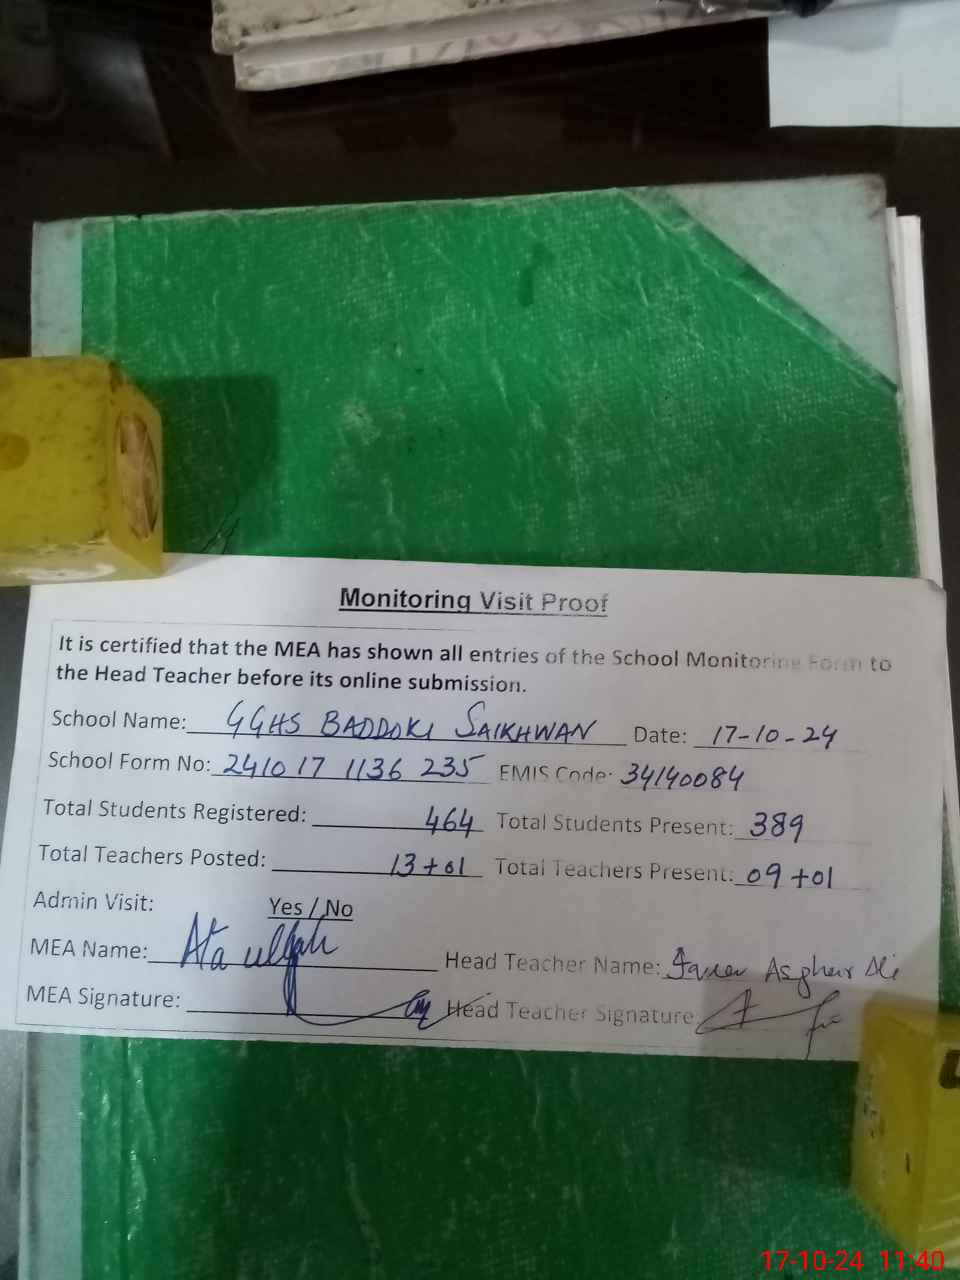 Monitoring Visit Proof
It is certified that the MEA has shown all entries of the School Monitoring Form to
the Head Teacher before its online submission.
School Name: GGHS BADDOKI SAIKHWAN Date: 17-10-24
School Form No: 241017 1136 235 EMIS Code: 34140084
Total Students Registered: 464 Total Students Present: 389
Total Teachers Posted: 13+01 Total Teachers Present: 09+01
Admin Visit: Yes / No
MEA Name: Ata ullah Head Teacher Name: Asghar Ali
MEA Signature: Head Teacher Signature
17-10-24 11:40